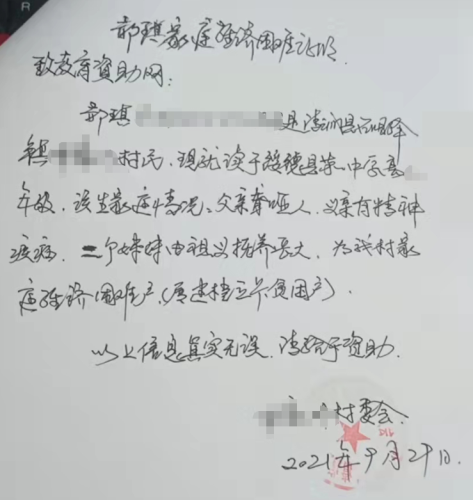 郝琪家庭经济困难证明
致教育资助网:
郝琪 是清涧县石咀驿
镇 村民,现就读于绥德县第一中学高
年级,该生家庭情况,父亲聋哑人,母亲有精神
疾病,二个妹妹由祖父抚养长大,为我村家
庭经济困难户,(原建档立卡贫困户).
以上信息真实无误,请给予资助.
村委会.
2021年9月29日.